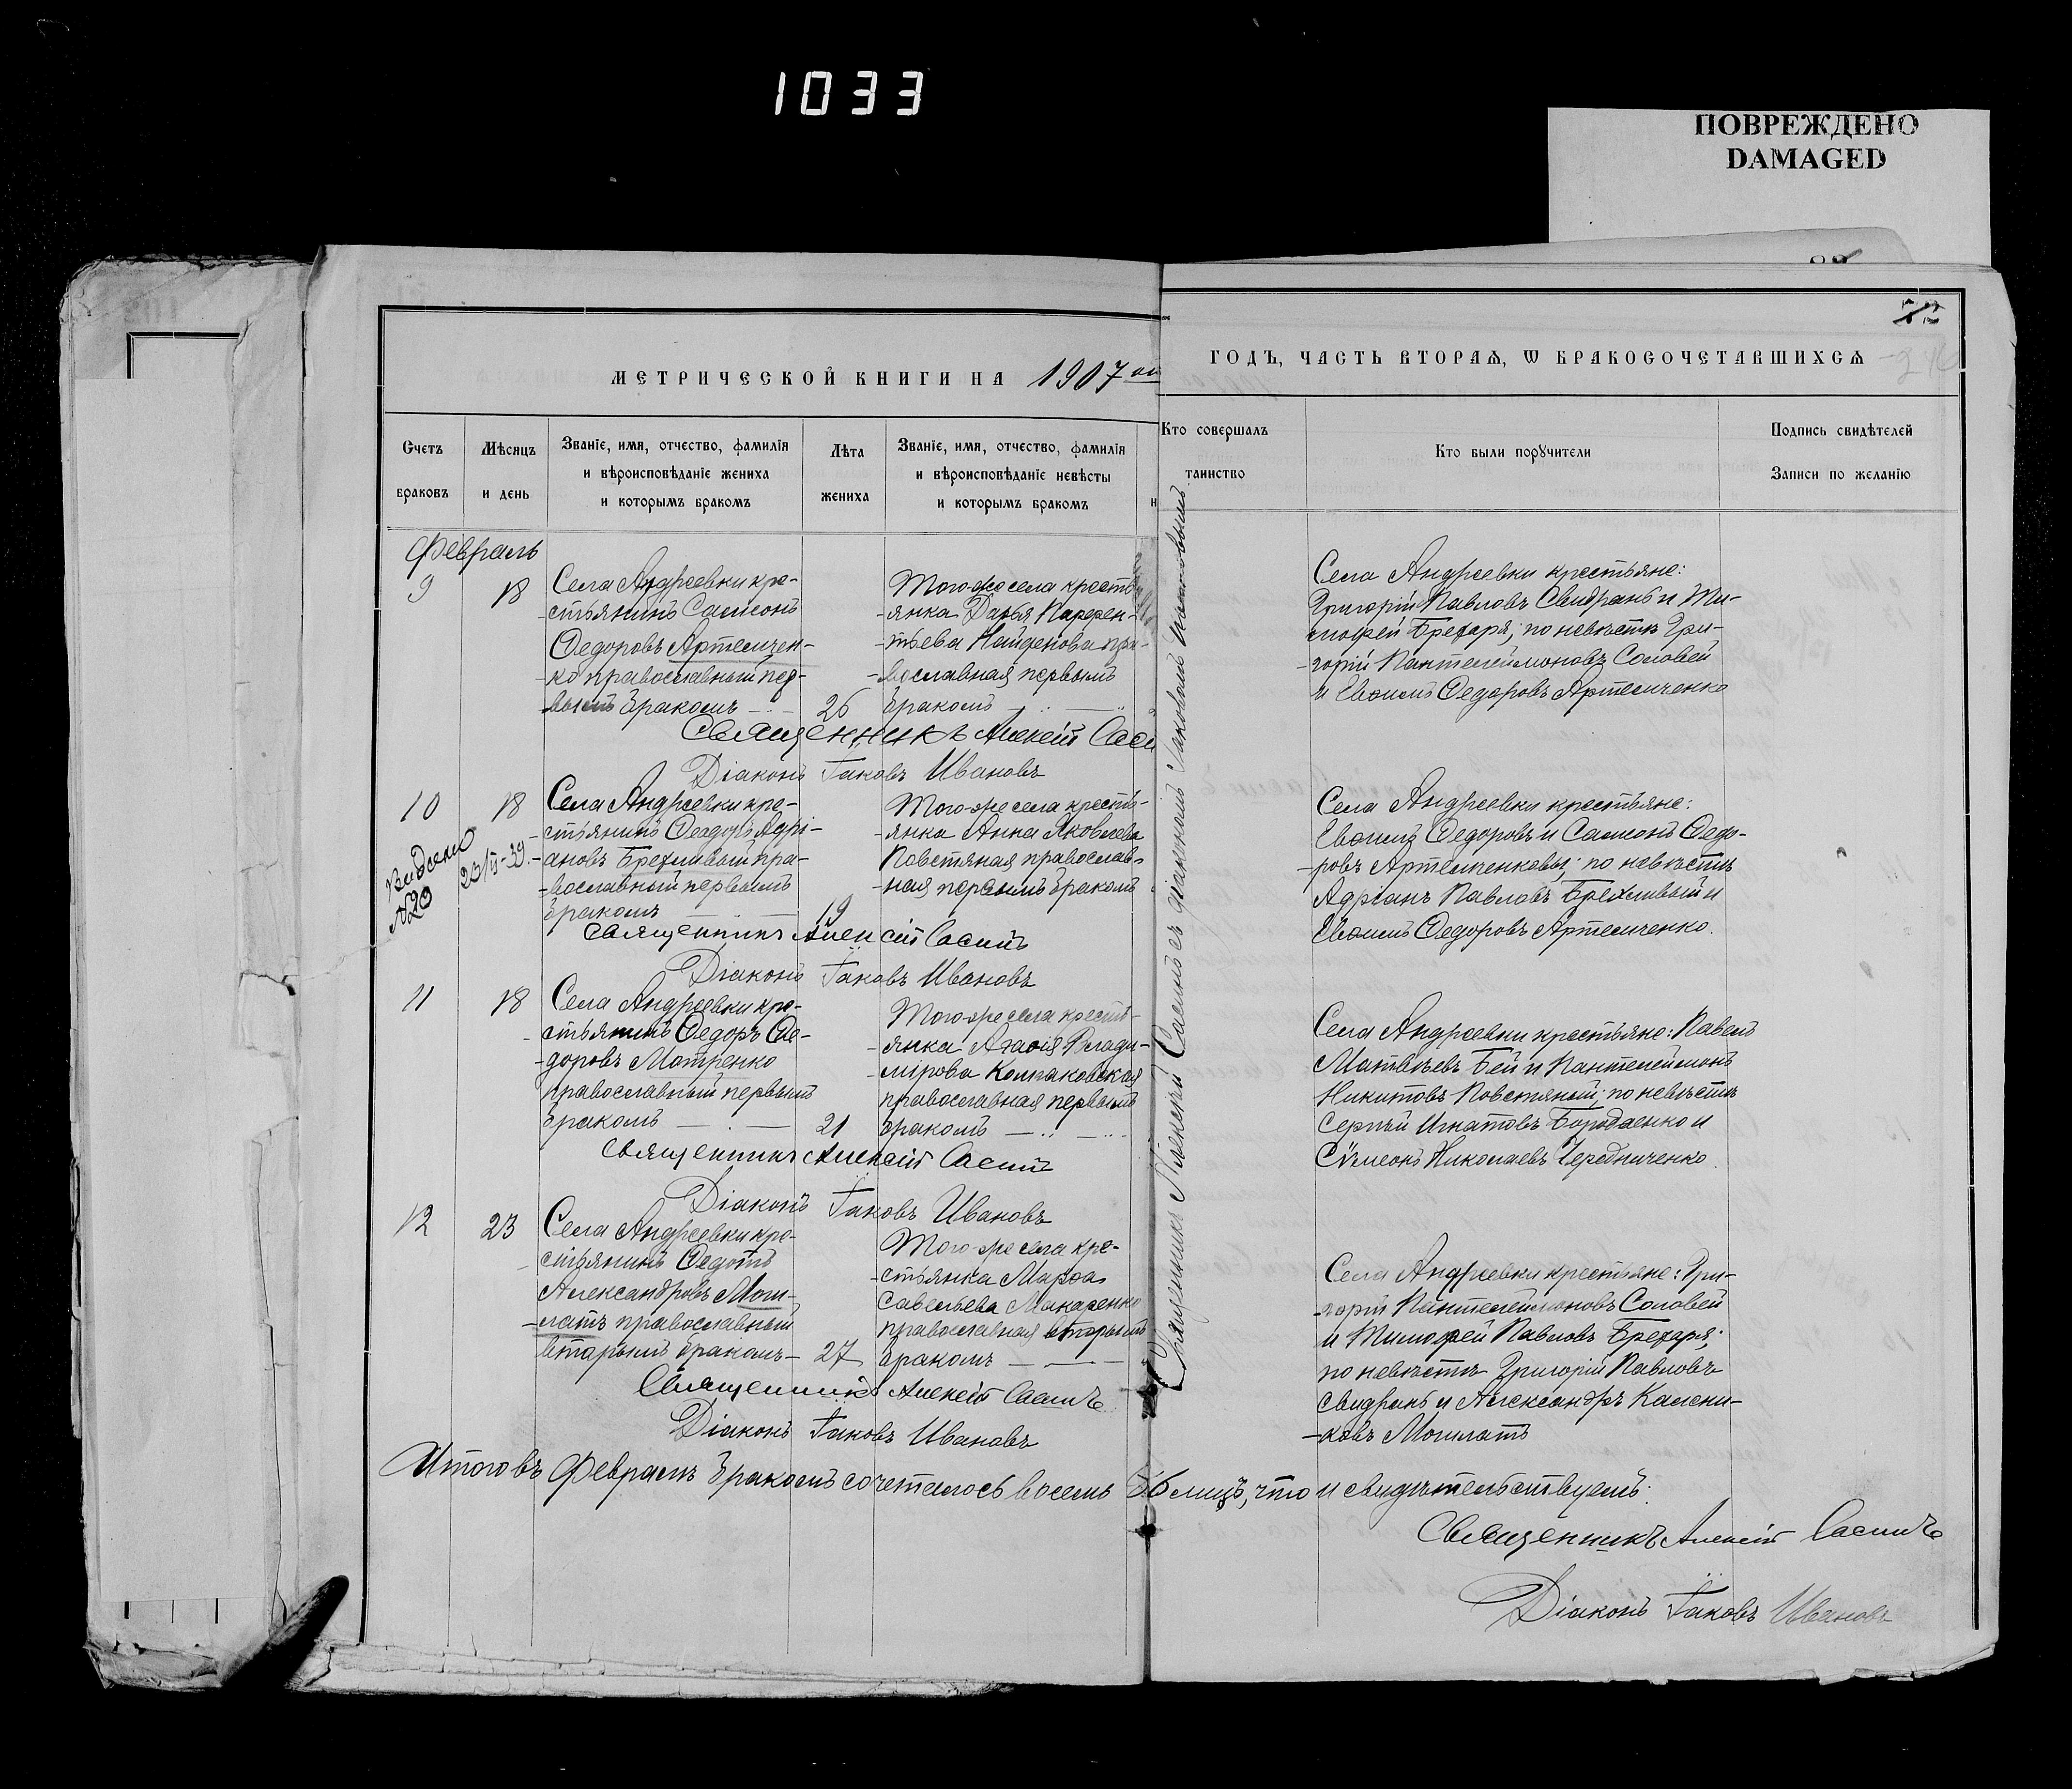 1033
ПОВРЕЖДЕНО
DAMAGED
72
МЕТРИЧЕСКОЙ КНИГИ НА 1907 ой
ГОДЪ, ЧАСТЬ ВТОРАѦ, Ѡ БРАКОСОЧЕТАВШИХСѦ
Счетъ
браковъ
Мѣсяцъ
и день
Званіе, имя, отчество, фамилія
и вѣроисповѣданіе жениха
и которымъ бракомъ
Лѣта
жениха
Званіе, имя, отчество, фамилія
и вѣроисповѣданіе невѣсты
и которымъ бракомъ
Кто совершалъ
таинство
Кто были порꙋчители
Подпись свидѣтелей
Записи по желанію
Февраль
9
18
Села Андреевки кре-
-стьянинъ Самсонъ
Ѳедоровъ Артемчен-
-ко православный пер-
-вымъ бракомъ
26
Того-же села кресть-
-янка Дарья Парфен-
-тьева Найденова пра-
-вославная первымъ
бракомъ
Села Андреевки крестьяне:
Григорій Павловъ Свидранъ и Ти-
-моѳей Брехаря; по невѣстѣ Гри-
-горій Пантелеймоновъ Соловей
и Евѳимъ Ѳедоровъ Артемченко
Священникъ Алексій
Діаконъ Іаковъ Ивановъ
10
18
Села Андреевки кре-
-стьянинъ Ѳеодоръ Адрі-
-ановъ Брехливый пра-
-вославный первымъ
бракомъ
19
Того-же села кресть-
-янка Анна Яковлева
Повстяная православ-
-ная первымъ бракомъ
Села Андреевки крестьяне:
Евѳимъ Ѳедоровъ и Самсонъ Ѳедо-
-ровъ Артемченковы; по невѣстѣ
Адріанъ Павловъ Брехливый и
Евѳимъ Ѳедоровъ Артемченко.
№20
Священникъ Алексій
Діаконъ Іаковъ Ивановъ
11
18
Села Андреевки кре-
-стьянинъ Ѳедоръ Ѳе-
-доровъ Мотренко
православный первымъ
бракомъ
21
Того-же села кресть-
-янка Агаѳія Влади-
-мірова Колпаковская
православная первымъ
бракомъ
Села Андреевки крестьяне: Павелъ
Матвѣевъ Бей и Пантелеймонъ
Никитовъ Повстяный; по невѣстѣ
Сергѣй Игнатовъ Бородаенко и
Сѵмеонъ Николаевъ Чередниченко.
Священникъ Алексій
Діаконъ Іаковъ Ивановъ
12
23
Села Андреевки кре-
-стьянинъ Ѳедотъ
Александровъ Моги-
-латъ православный
вторымъ бракомъ
27
Того-же села кре-
-стьянка Марѳа
Савельева Макаренко
православная вторымъ
бракомъ
Села Андреевки крестьяне: Гри-
-горій Пантелеймоновъ Соловей
и Тимоѳей Павловъ Брехаря;
по невѣстѣ Григорій Павловъ
Свидранъ и Александръ Калени-
-ковъ Могилатъ
Священникъ Алексій
Діаконъ Іаковъ Ивановъ
Итого въ Февралѣ бракомъ сочеталось восемь лицъ, что и свидѣтельствуемъ.
Священникъ Алексій
Діаконъ Іаковъ Ивановъ